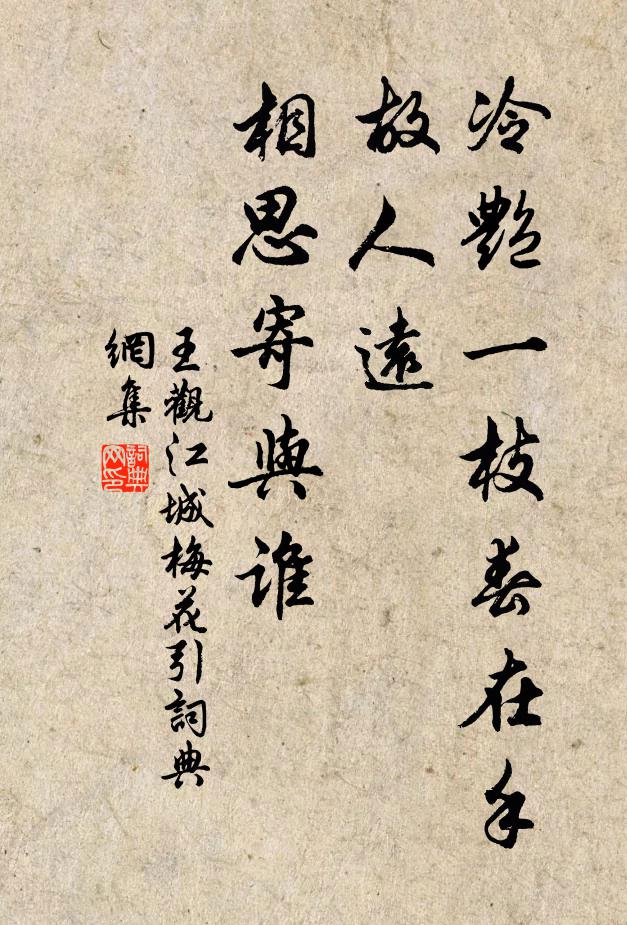 冷艷一枝春在手
故人遠
相思寄與誰
王觀江城梅花引詞典
網集
詞典
网印